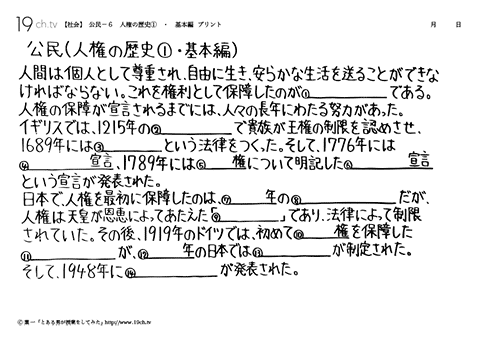 19ch.tv 【社会】 公民－6 人権の歴史① ・ 基本編 プリント 月 日
公民(人権の歴史①・基本編)
人間は個人として尊重され、自由に生き、安らかな生活を送ることができな
ければならない。これを権利として保障したのが①＿＿＿＿＿である。
人権の保障が宣言されるまでには、人々の長年にわたる努力があった。
イギリスでは、1215年の②＿＿＿＿＿で貴族が王権の制限を認めさせ、
1689年には③＿＿＿＿＿という法律をつくった。そして、1776年には
④＿＿＿＿＿宣言、1789年には⑤＿＿＿権について明記した⑥＿＿＿＿＿宣言
という宣言が発表された。
日本で、人権を最初に保障したのは、⑦＿＿＿年の⑧＿＿＿＿＿だが、
人権は天皇が恩恵によってあたえた「⑨＿＿＿＿＿」であり、法律によって制限
されていた。その後、1919年のドイツでは、初めて⑩＿＿＿権を保障した
⑪＿＿＿＿＿が、⑫＿＿＿年の日本では⑬＿＿＿＿＿が制定された。
そして、1948年に⑭＿＿＿＿＿が発表された。
© 葉一「とある男が授業をしてみた」http://www.19ch.tv